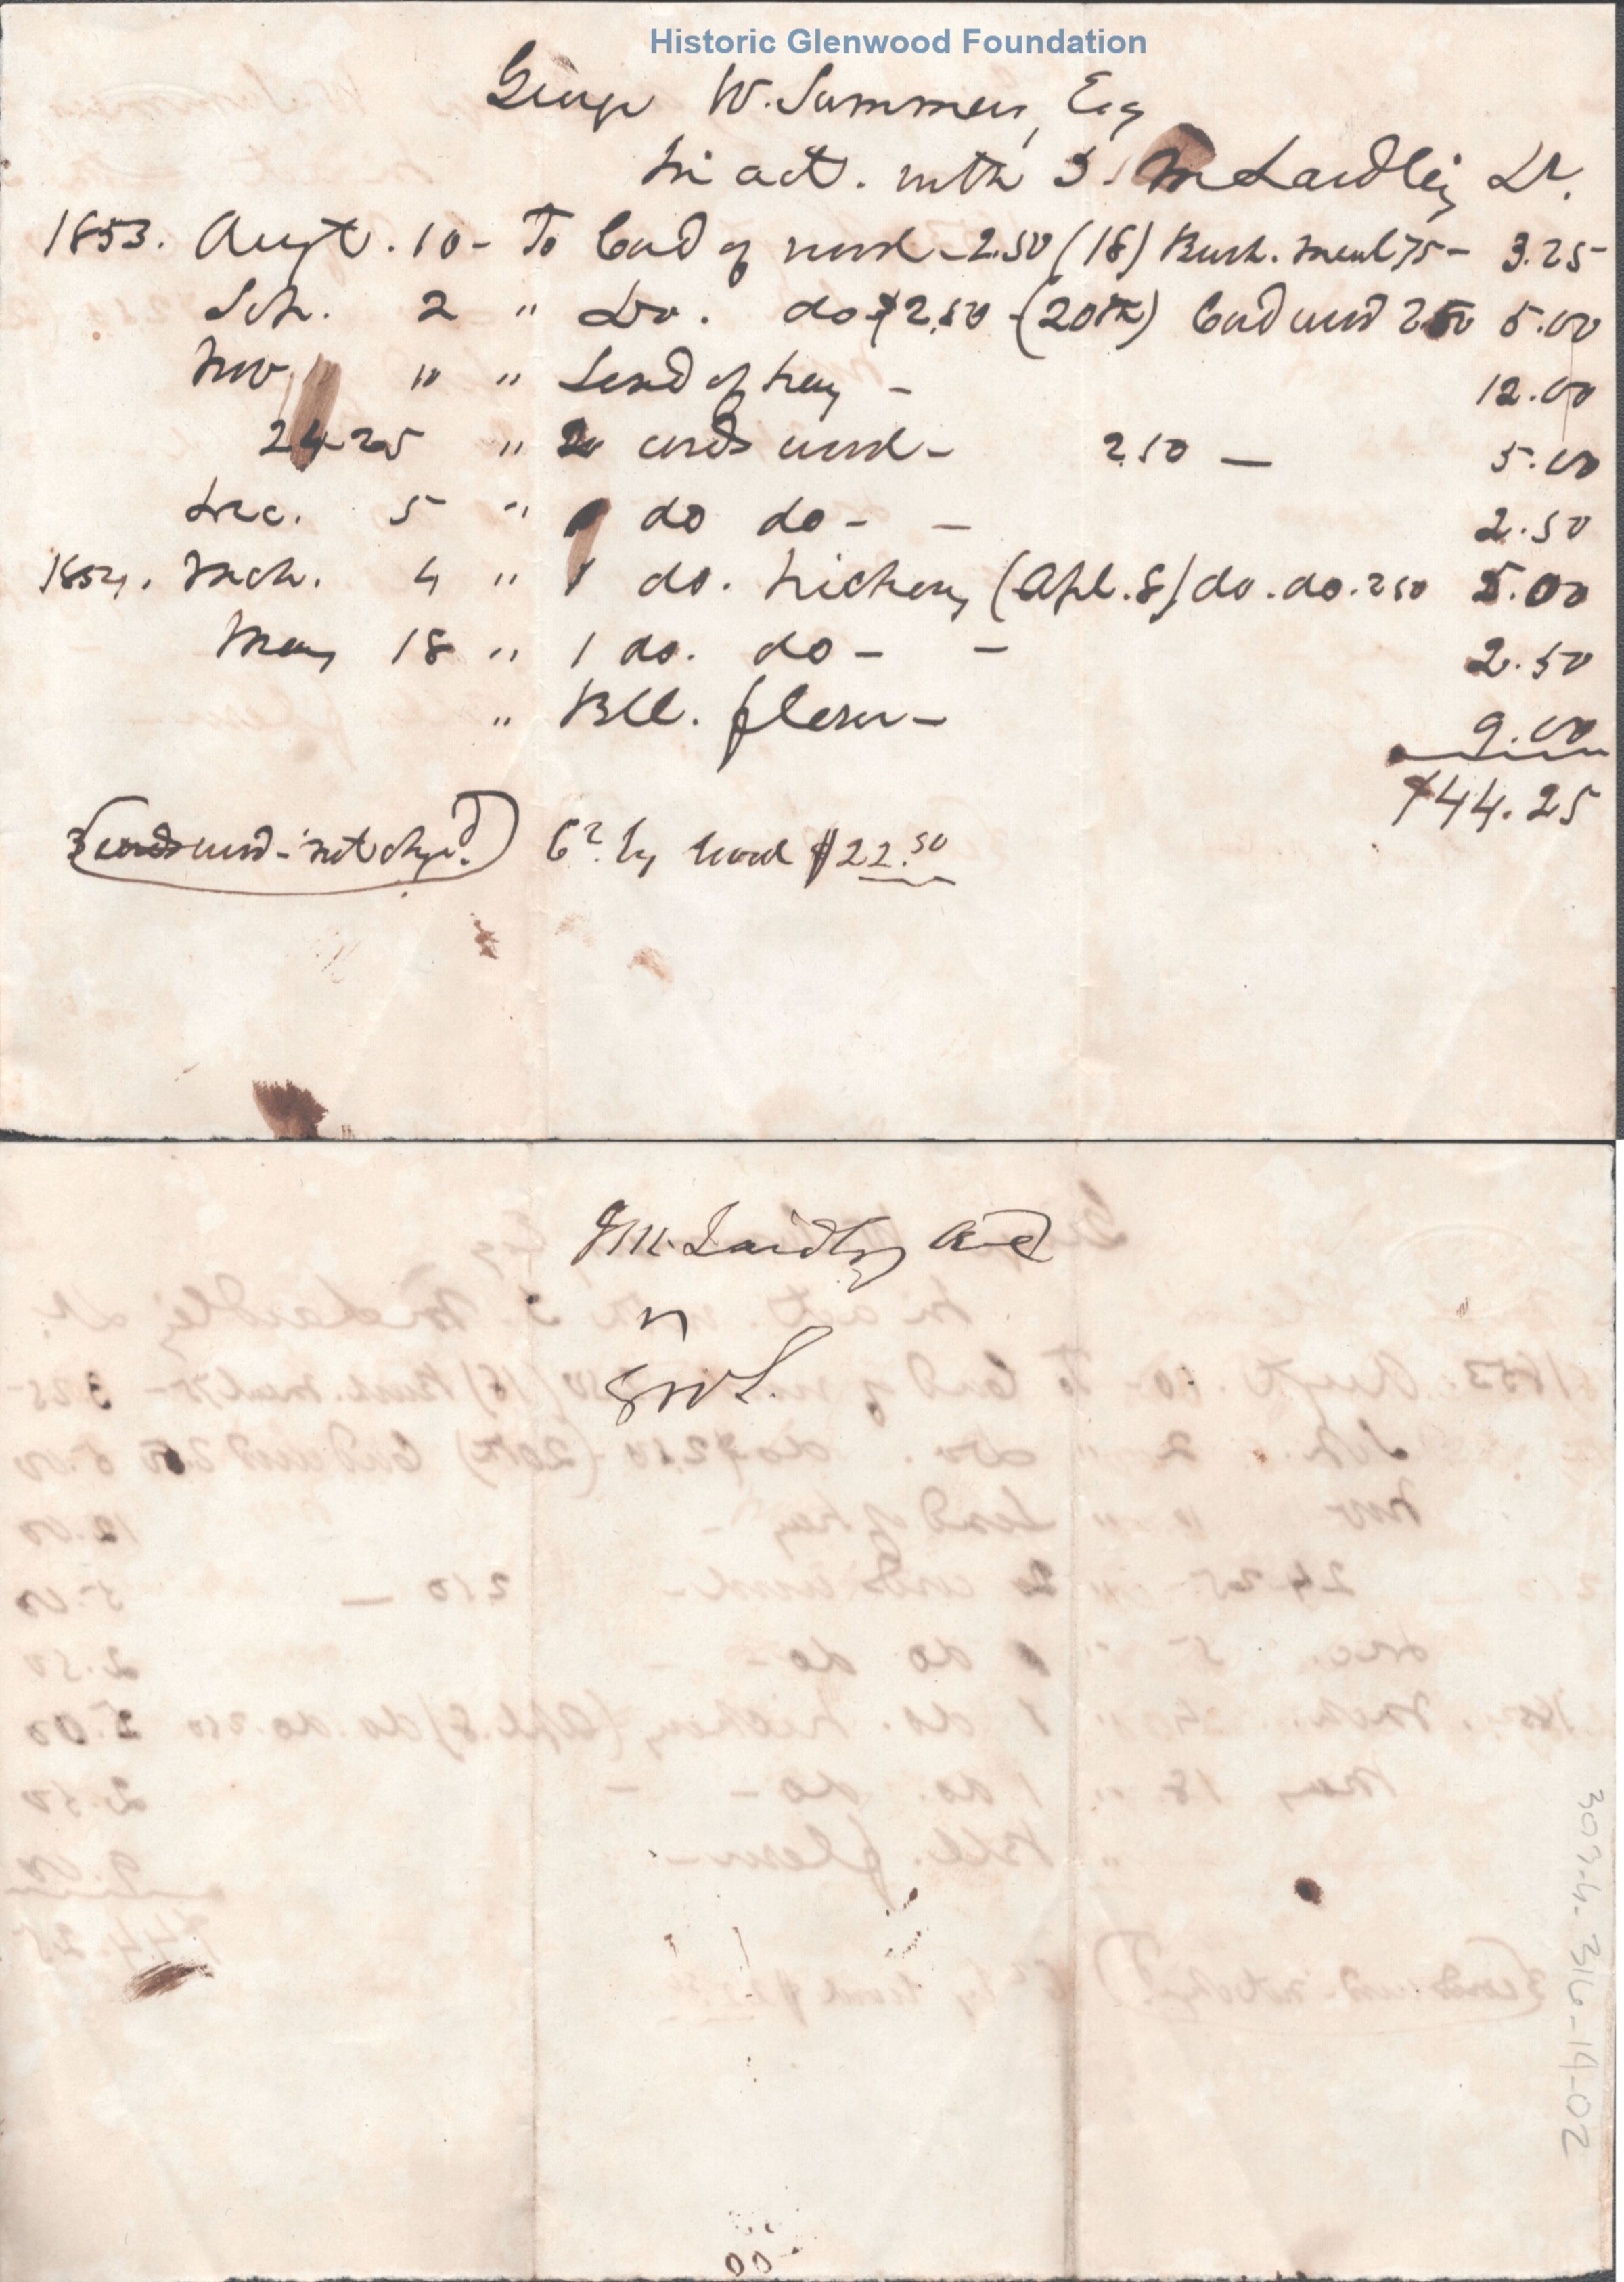 Historic Glenwood Foundation
George W. Summers, Esq
In act. with J. M Laidley Dr.
1853. Augt. 10 - To Cord of wood - 2.50 (18) Bush. meal 75 - 3.25
Sep. 2 " Do. do $2.50 - (20th) Cord wood 2.50 5.00
Nov. " " Load of hay - 12.00
24-25 " 2 cords wood - 2.50 — 5.00
Dec. 5 " 1 do do - - 2.50
1854. Mch. 4 " 1 do. hickory (Apl. 8) do. do. 2.50 5.00
May 18 " 1 do. do - - 2.50
" Bbl. flour - 9.00
$44.25
(3 cords wood - not chgd.) Cr. by wood $22.50
J M. Laidley acct
vs
GWS.
307.4.316-14-02